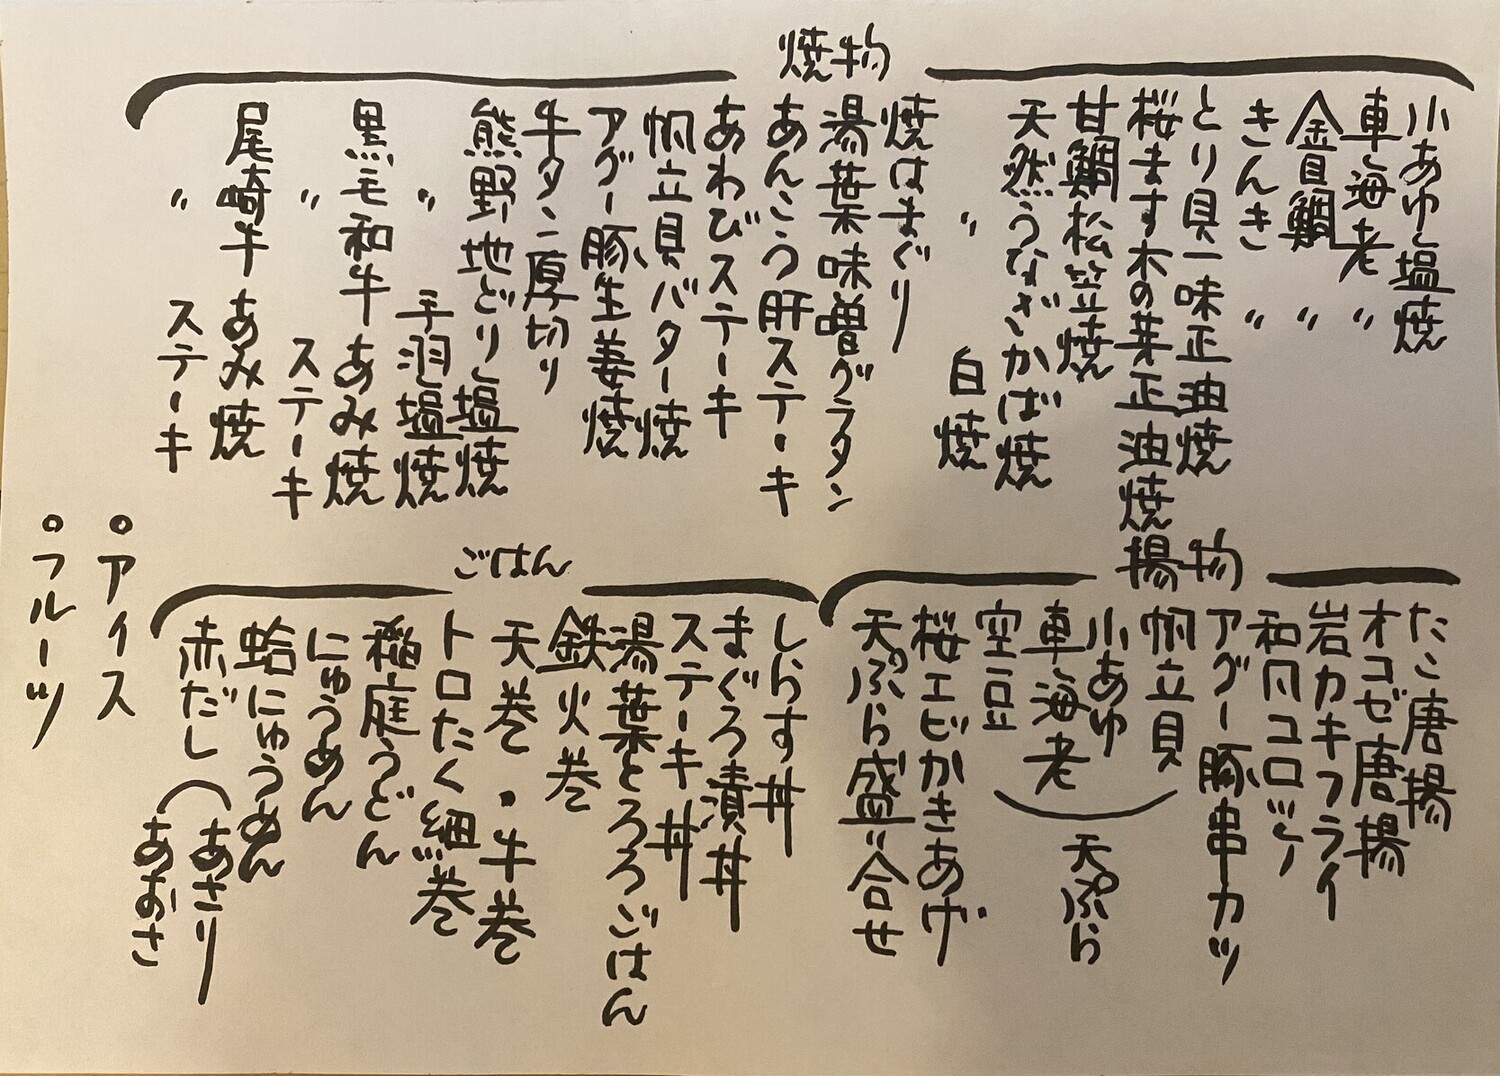 焼物
小あゆ塩焼
車海老 〃
金目鯛 〃
きんき 〃
とり貝一味正油焼
桜ます木の芽正油焼
甘鯛松笠焼
天然うなぎかば焼
〃 白焼
焼はまぐり
湯葉味噌グラタン
あんこう肝ステーキ
あわびステーキ
帆立貝バター焼
アグー豚生姜焼
牛タン厚切り
熊野地どり塩焼
〃 手羽塩焼
黒毛和牛あみ焼
〃 ステーキ
尾崎牛あみ焼
〃 ステーキ
揚物
たこ唐揚
オコゼ唐揚
岩カキフライ
和風コロッケ
アグー豚串カツ
帆立貝
小あゆ
車海老
空豆
天ぷら
桜エビかきあげ
天ぷら盛り合せ
ごはん
しらす丼
まぐろ漬丼
ステーキ丼
湯葉とろろごはん
鉄火巻
天巻・牛巻
トロたく細巻
稲庭うどん
にゅうめん
蛤にゅうめん
赤だし(あさり
あおさ
○アイス
○フルーツ